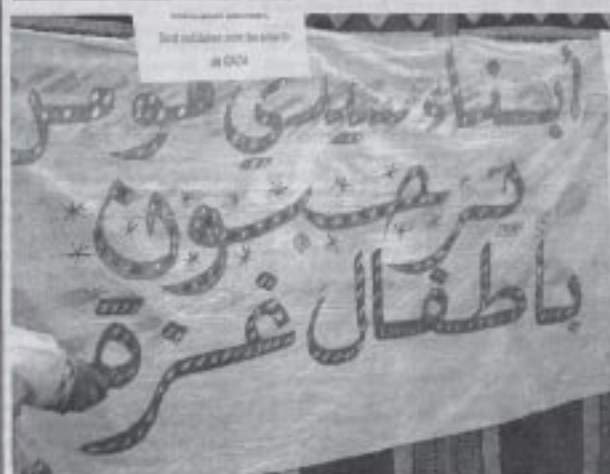 Sont solidaires avec les enfants
de GAZA
أبناء سيدي مومن
يرحبون
باطفال غزة